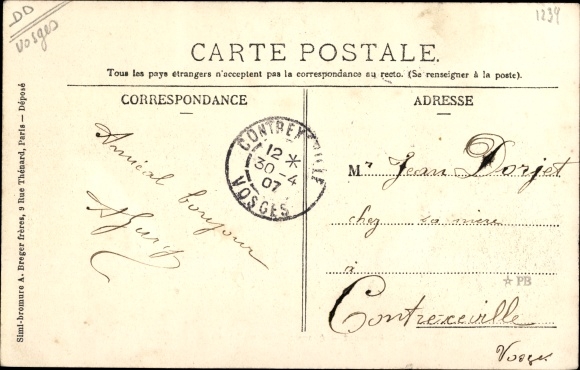 DD
Vosges
1234
CARTE POSTALE.
Tous les pays étrangers n'acceptent pas la correspondance au recto. (Se renseigner à la poste).
CORRESPONDANCE
ADRESSE
Amical bonjour
CONTREXEVILLE
12 *
30-4
07
VOSGES
Mr Jean Dorjet
chez sa mère
à
Contrexeville
Vosges
PB
Simi-bromure A. Breger frères, 9 Rue Thénard, Paris — Déposé